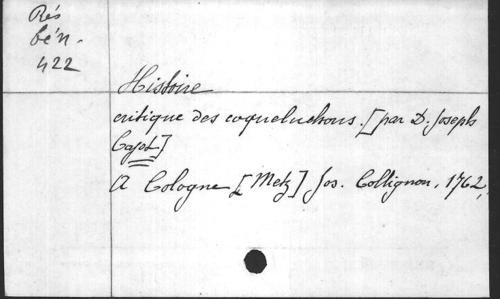 Rés
bén.
422
Histoire
critique des coqueluchons. [par D. Joseph
Cajot]
A Cologne [Metz] Jos. Collignon, 1762,